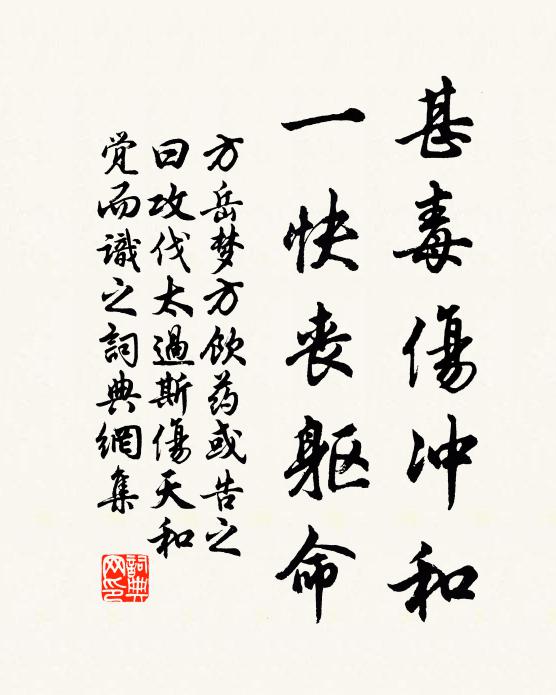 甚毒傷冲和
一快丧躯命
方岳梦方飲药或告之
曰攻伐太過斯傷天和
觉而識之詞典網集
詞典网印